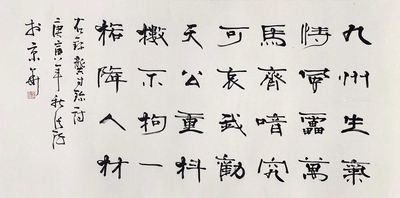 九州生氣
恃風雷萬
馬齊喑究
可哀我勸
天公重抖
擻不拘一
格降人材
右録龔自珍詩
庚寅年秋
於京華